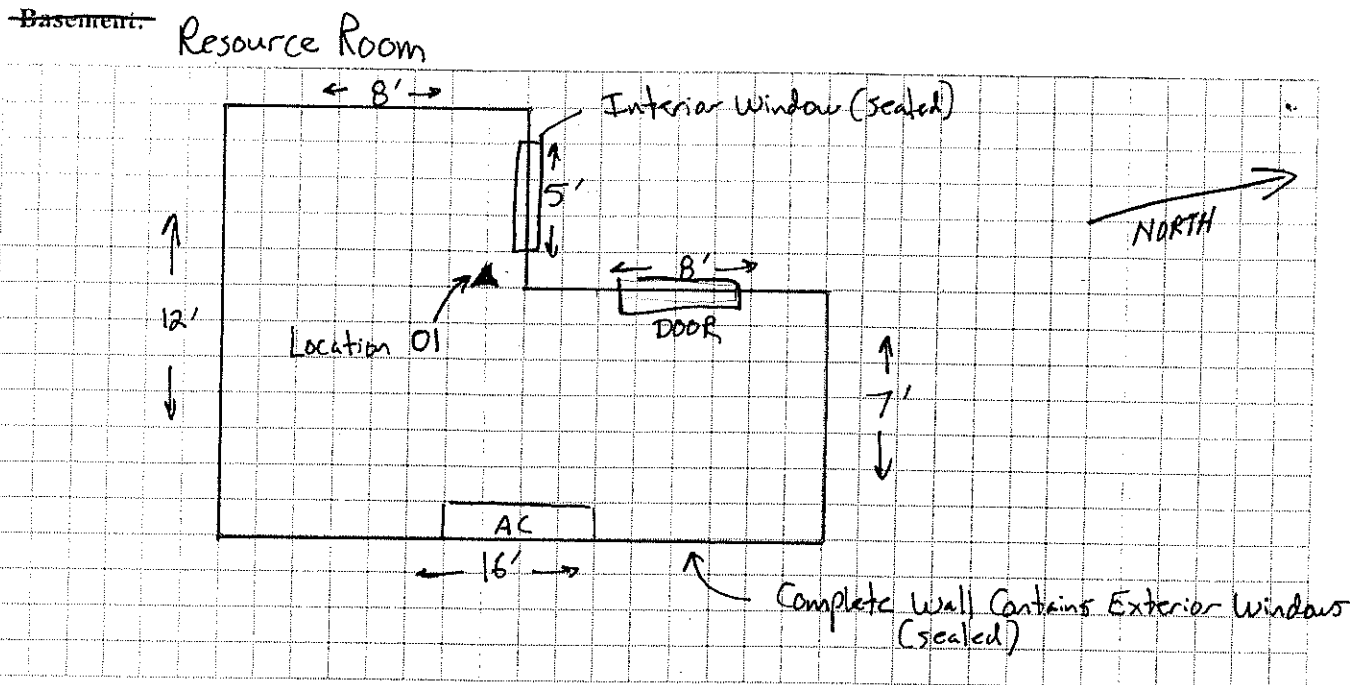 Basement.
Resource Room
← 8' →
Interior Window (sealed)
5'
NORTH
8'
DOOR
12'
Location 01
7'
AC
16'
Complete Wall Contains Exterior Windows
(sealed)